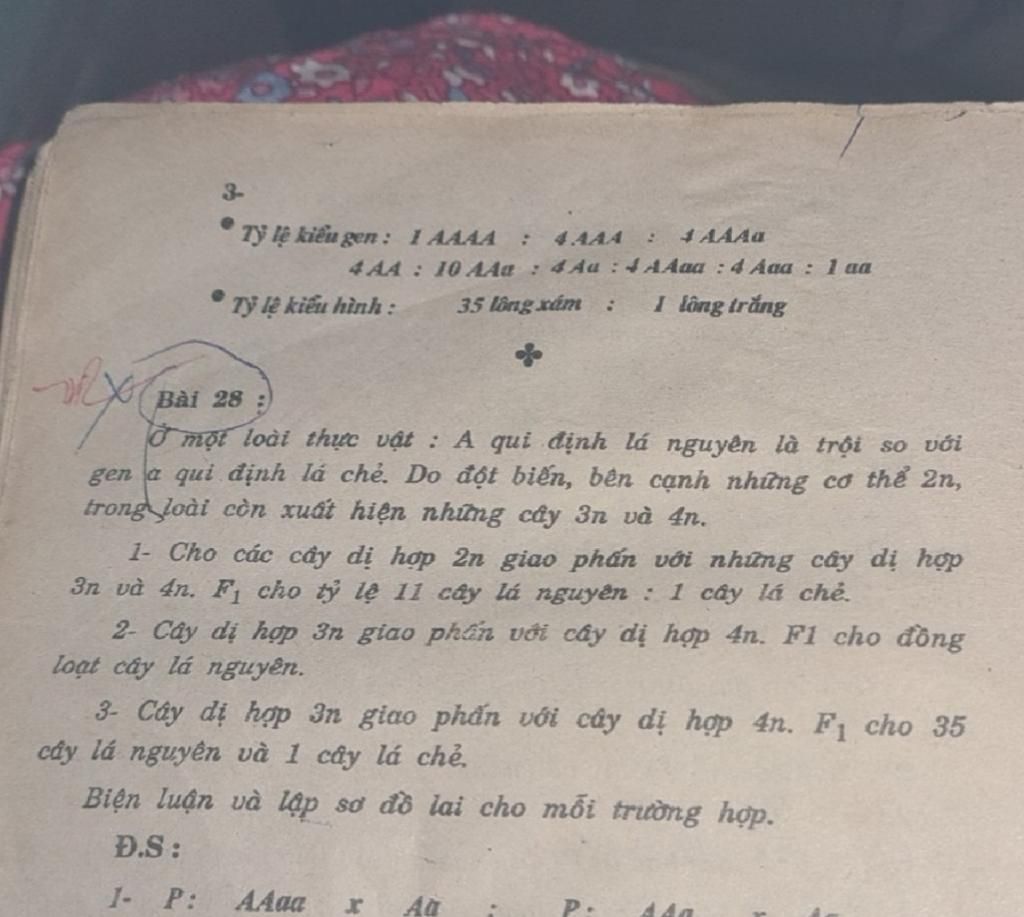 3-
• Tỷ lệ kiểu gen : 1 AAAA : 4 AAA : 4 AAAa
4 AA : 10 AAa : 4 Aa : 4 AAaa : 4 Aaa : 1 aa
• Tỷ lệ kiểu hình : 35 lông xám : 1 lông trắng
Bài 28 :
Ở một loài thực vật : A qui định lá nguyên là trội so với
gen a qui định lá chẻ. Do đột biến, bên cạnh những cơ thể 2n,
trong loài còn xuất hiện những cây 3n và 4n.
1- Cho các cây dị hợp 2n giao phấn với những cây dị hợp
3n và 4n. F1 cho tỷ lệ 11 cây lá nguyên : 1 cây lá chẻ.
2- Cây dị hợp 3n giao phấn với cây dị hợp 4n. F1 cho đồng
loạt cây lá nguyên.
3- Cây dị hợp 3n giao phấn với cây dị hợp 4n. F1 cho 35
cây lá nguyên và 1 cây lá chẻ.
Biện luận và lập sơ đồ lai cho mỗi trường hợp.
Đ.S :
1- P : AAaa x Aa ; P : AAa x